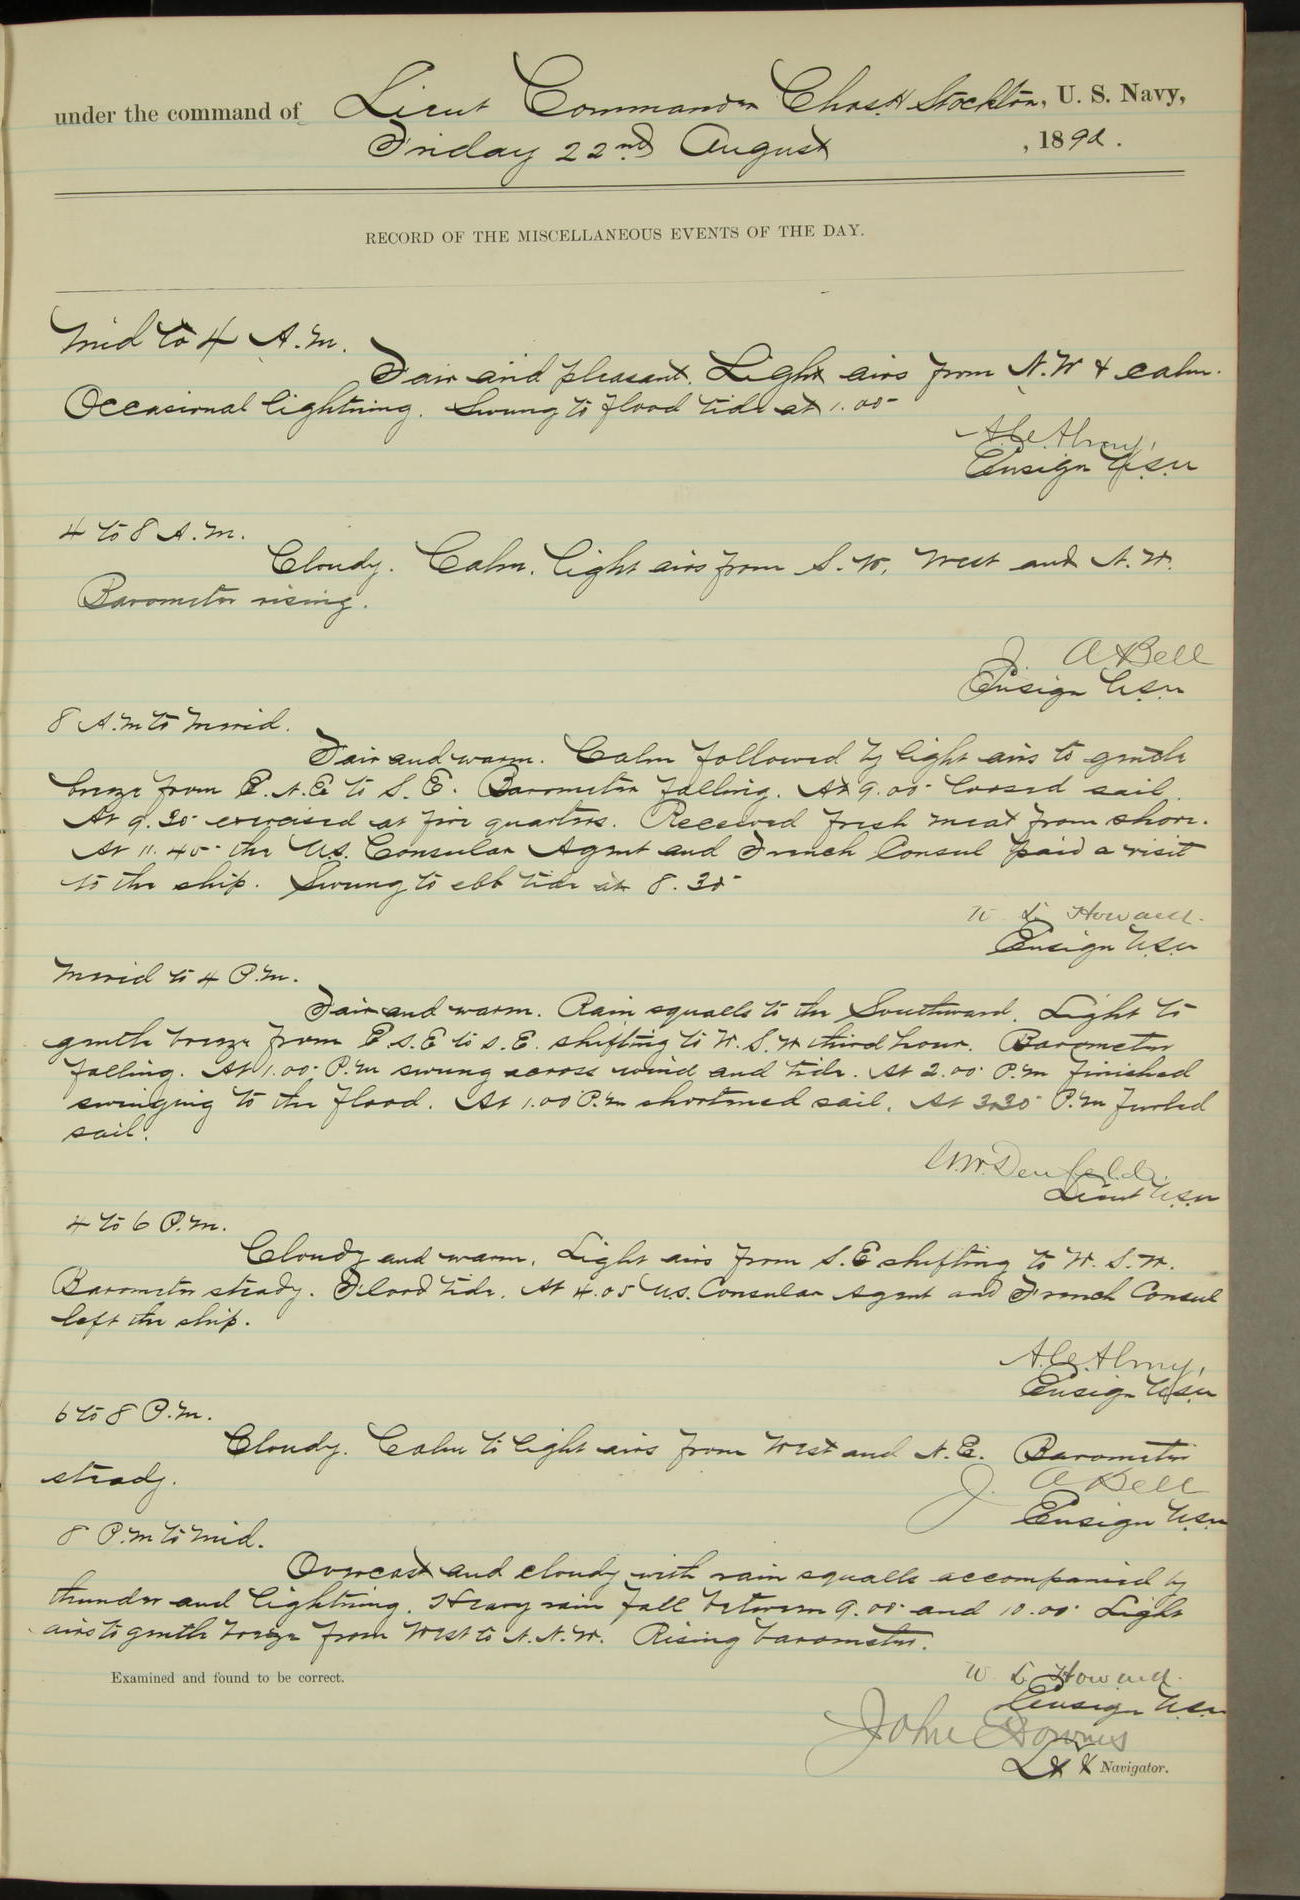 under the command of Lieut Commander Chas. H Stockton, U. S. Navy,
Friday 22nd August , 1890.
RECORD OF THE MISCELLANEOUS EVENTS OF THE DAY.
Mid to 4 A.M.
Fair and pleasant. Light airs from N.W & calm.
Occasional lightning. Swung to flood tide at 1.00
A.C. Almy,
Ensign U.S.N
4 to 8 A.M.
Cloudy. Calm. light airs from S.W, West and N.W.
Barometer rising.
J. A Bell
Ensign U.S.N
8 A.M to Merid.
Fair and warm. Calm followed by light airs to gentle
breeze from E.N.E to S.E. Barometer falling. At 9.00 loosed sail.
At 9.30 exercised at fire quarters. Received fresh meat from shore.
At 11.45 the U.S. Consular Agent and French Consul paid a visit
to the ship. Swung to ebb tide at 8.30
W L Howard.
Ensign U.S.N
Merid to 4 P.M.
Fair and warm. Rain squalls to the Southward. Light to
gentle breeze from E.S.E to S.E. shifting to W.S.W third hour. Barometer
falling. At 1.00 P.M swung across wind and tide. At 2.00 P.M finished
swinging to the flood. At 1.00 P.M shortened sail. At 3.30 P.M furled
sail.
Denfeld.
Lieut U.S.N
4 to 6 P.M.
Cloudy and warm. Light airs from S.E shifting to W.S.W.
Barometer steady. Flood tide. At 4.05 U.S. Consular Agent and French Consul
left the ship.
A.C. Almy,
Ensign U.S.N
6 to 8 P.M.
Cloudy. Calm to light airs from West and N.E. Barometer
steady.
J. A Bell
Ensign U.S.N
8 P.M to Mid.
Overcast and cloudy with rain squalls accompanied by
thunder and lightning. Heavy rain fall between 9.00 and 10.00 Light
airs to gentle breeze from West to N.N.W. Rising barometer.
Examined and found to be correct.
W L Howard.
Ensign U.S.N
John Downes
Lt & Navigator.